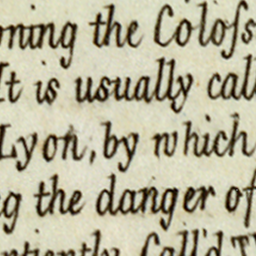 ning the Coloſs
It is usually call
Lyon, by which
g the danger of
ntiently Call'd